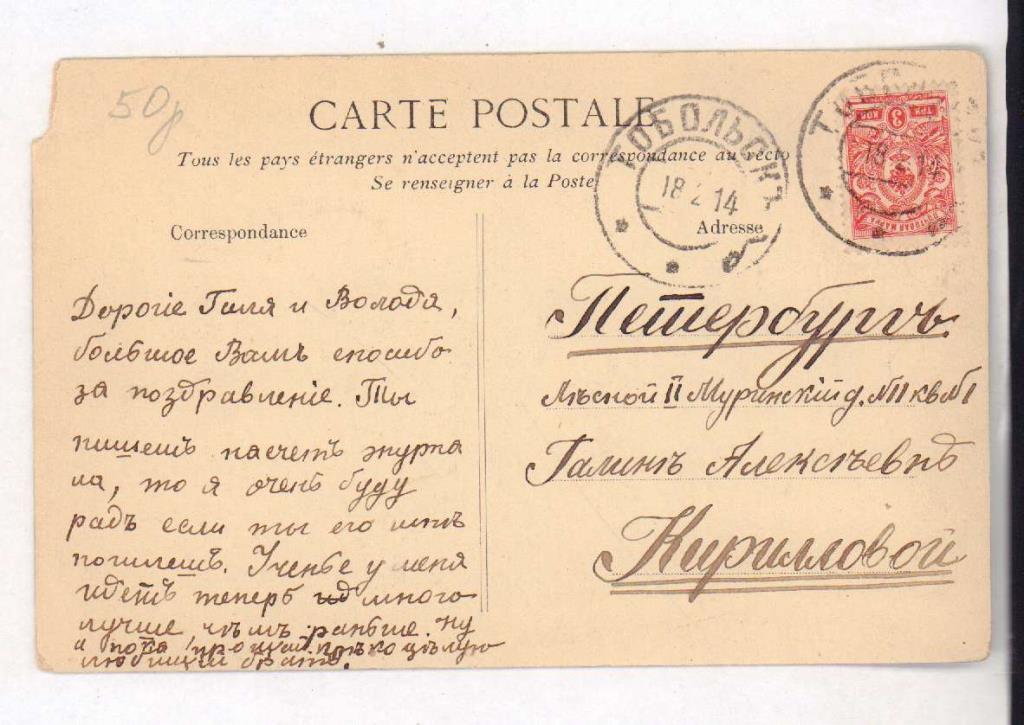 50р
CARTE POSTALE
Tous les pays étrangers n'acceptent pas la correspondance au recto
Se renseigner à la Poste
ТОБОЛЬСКЪ
18 2 14
18 2 14
ТРИ 3 КОП
ПОЧТОВАЯ МАРКА
Correspondance
Adresse
Дорогіе Галя и Володя,
большое Вамъ спосибо
за поздравленіе. Ты
пишешъ насчетъ журна
ла, то я очень буду
радъ если ты его мнѣ
пошлешъ. Ученье у меня
идетъ теперь много
лучше, чѣмъ раньше. Ну
а пока прощай крѣпко цѣлую
любящій братъ.
Петербургъ
Лѣсной II Муринскій д. №11 кв №1
Галинѣ Алексѣевнѣ
Кирилловой